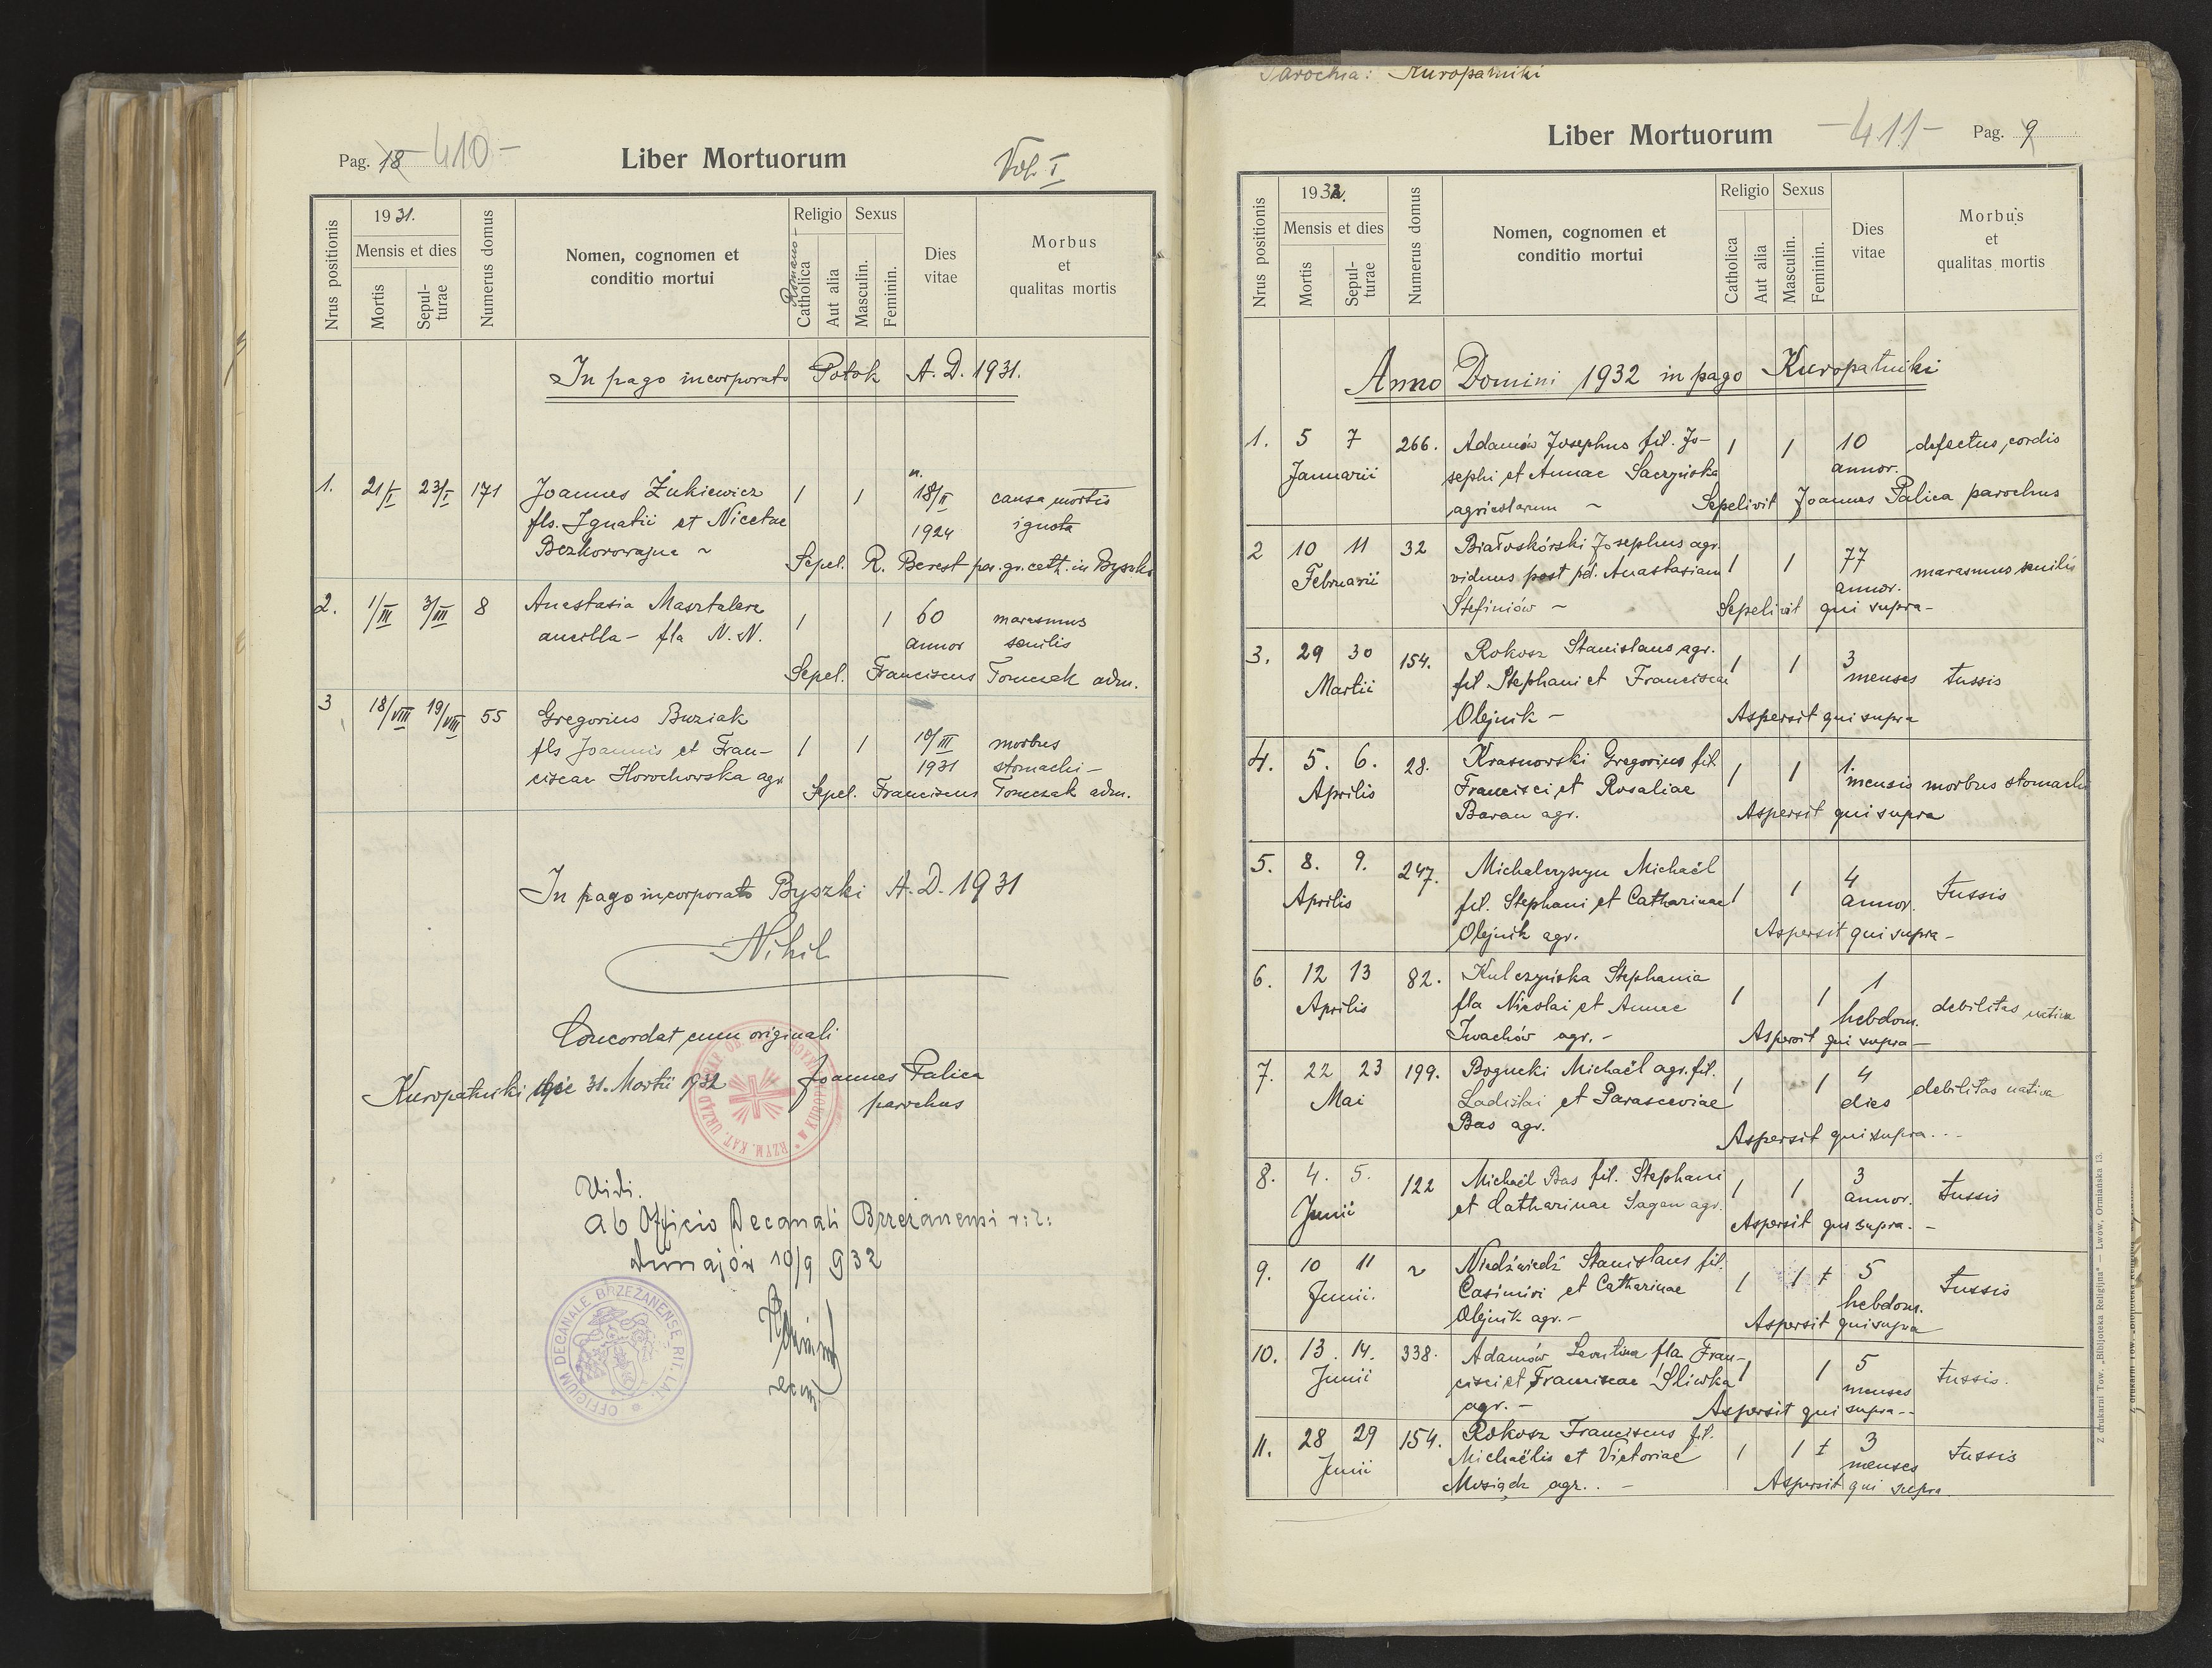 Pag. 18 - 410 -
Liber Mortuorum
Vol. I
Nrus positionis
1931.
Mensis et dies
Mortis
Sepulturae
Numerus domus
Nomen, cognomen et
conditio mortui
Religio
Romano-Catholica
Aut alia
Sexus
Masculin.
Feminin.
Dies
vitae
Morbus
et
qualitas mortis
In pago incorporato Potok A. D. 1931.
1. 21/I 23/I 171 Joannes Żukiewicz 1 1 n. 18/II causa mortis
fls. Ignatii et Nicetae 1924 ignota
Bezkorowajne ~ Sepel. R. Berest par. gr. cath. in Byszki
2. 1/III 3/III 8 Anastasia Masztalerz 1 1 60 marasmus
ancilla - fla N. N. annor senilis
Sepel. Franciscus Tomczak adm.
3 18/VIII 19/VIII 55 Gregorius Buziak
fls Joannis et Fran- 1 1 10/III morbus
ciscae Horochowska agr. 1931 stomachi -
Sepel. Franciscus Tomczak adm.
In pago incorporato Byszki A. D. 1931
Nihil
Concordat cum originali
Kuropatniki die 31. Martii 1932 Joannes Palica
parochus
Vidi.
Ab Officio Decanali Brzeżanensi r. l:
Dunajów 10/9 932
OFFICIUM DECANALE BRZEŻANENSE RIT. LAT.
RZYM. KAT. URZĄD
Parochia: Kuropatniki
Liber Mortuorum
- 411 - Pag. 9
Nrus positionis
1932.
Mensis et dies
Mortis
Sepulturae
Numerus domus
Nomen, cognomen et
conditio mortui
Religio
Catholica
Aut alia
Sexus
Masculin.
Feminin.
Dies
vitae
Morbus
et
qualitas mortis
Anno Domini 1932 in pago Kuropatniki
1. 5 7 266. Adamów Josephus fil. Jo- 1 1 10 defectus cordis
Januarii sephi et Annae Saczyńska annor.
agricolarum ~ Sepelivit Joannes Palica parochus
2 10 11 32 Białoskórski Josephus agr. 1 1 77 marasmus senilis
Februarii viduus post pd. Anastasiam annor.
Stefiniów ~ Sepelivit qui supra -
3. 29 30 154. Rokosz Stanislaus agr. 1 1 3
Martii fil Stephani et Franciscae menses tussis
Olejnik - Aspersit qui supra
4. 5. 6. 28. Krasnowski Gregorius fil 1 1 1.
Aprilis Francisci et Rosaliae mensis morbus stomachi
Baran agr. Aspersit qui supra
5. 8. 9. 247. Michalczyszyn Michaël 1 1 4 tussis
Aprilis fil. Stephani et Catharinae annor.
Olejnik agr. Aspersit qui supra -
6. 12 13 82. Kulczyńska Stephania 1 1 1
Aprilis fla Nicolai et Annae hebdom. debilitas nativa
Iwachów agr. - Aspersit qui supra -
7. 22 23 199. Bogucki Michaël agr. fil. 1 1 4
Mai Ladislai et Parasceviae dies debilitas nativa
Bas agr. Aspersit qui supra . . -
8. 4. 5. 122 Michaël Bas fil. Stephani 1 1 3 tussis
Junii et Catharinae Sagan agr. annor.
Aspersit qui supra. -
9. 10 11 ~ Niedźwiedź Stanislaus fil. 1 1 ± 5 tussis
Junii. Casimiri et Catharinae hebdom.
Olejnik agr. - Aspersit qui supra
10. 13. 14. 338. Adamów Leontina fla Fran- 1 1 5 tussis.
Junii cisci et Franciscae Śliwka menses
agr. - Aspersit qui supra - -
11. 28 29 154. Rokosz Franciscus fil. 1 1 ± 3 tussis
Junii Michaëlis et Victoriae menses
Mosiądz agr. . - Aspersit qui supra
Z drukarni Tow. „Bibljoteka Religijna" — Lwów, Ormiańska 13.